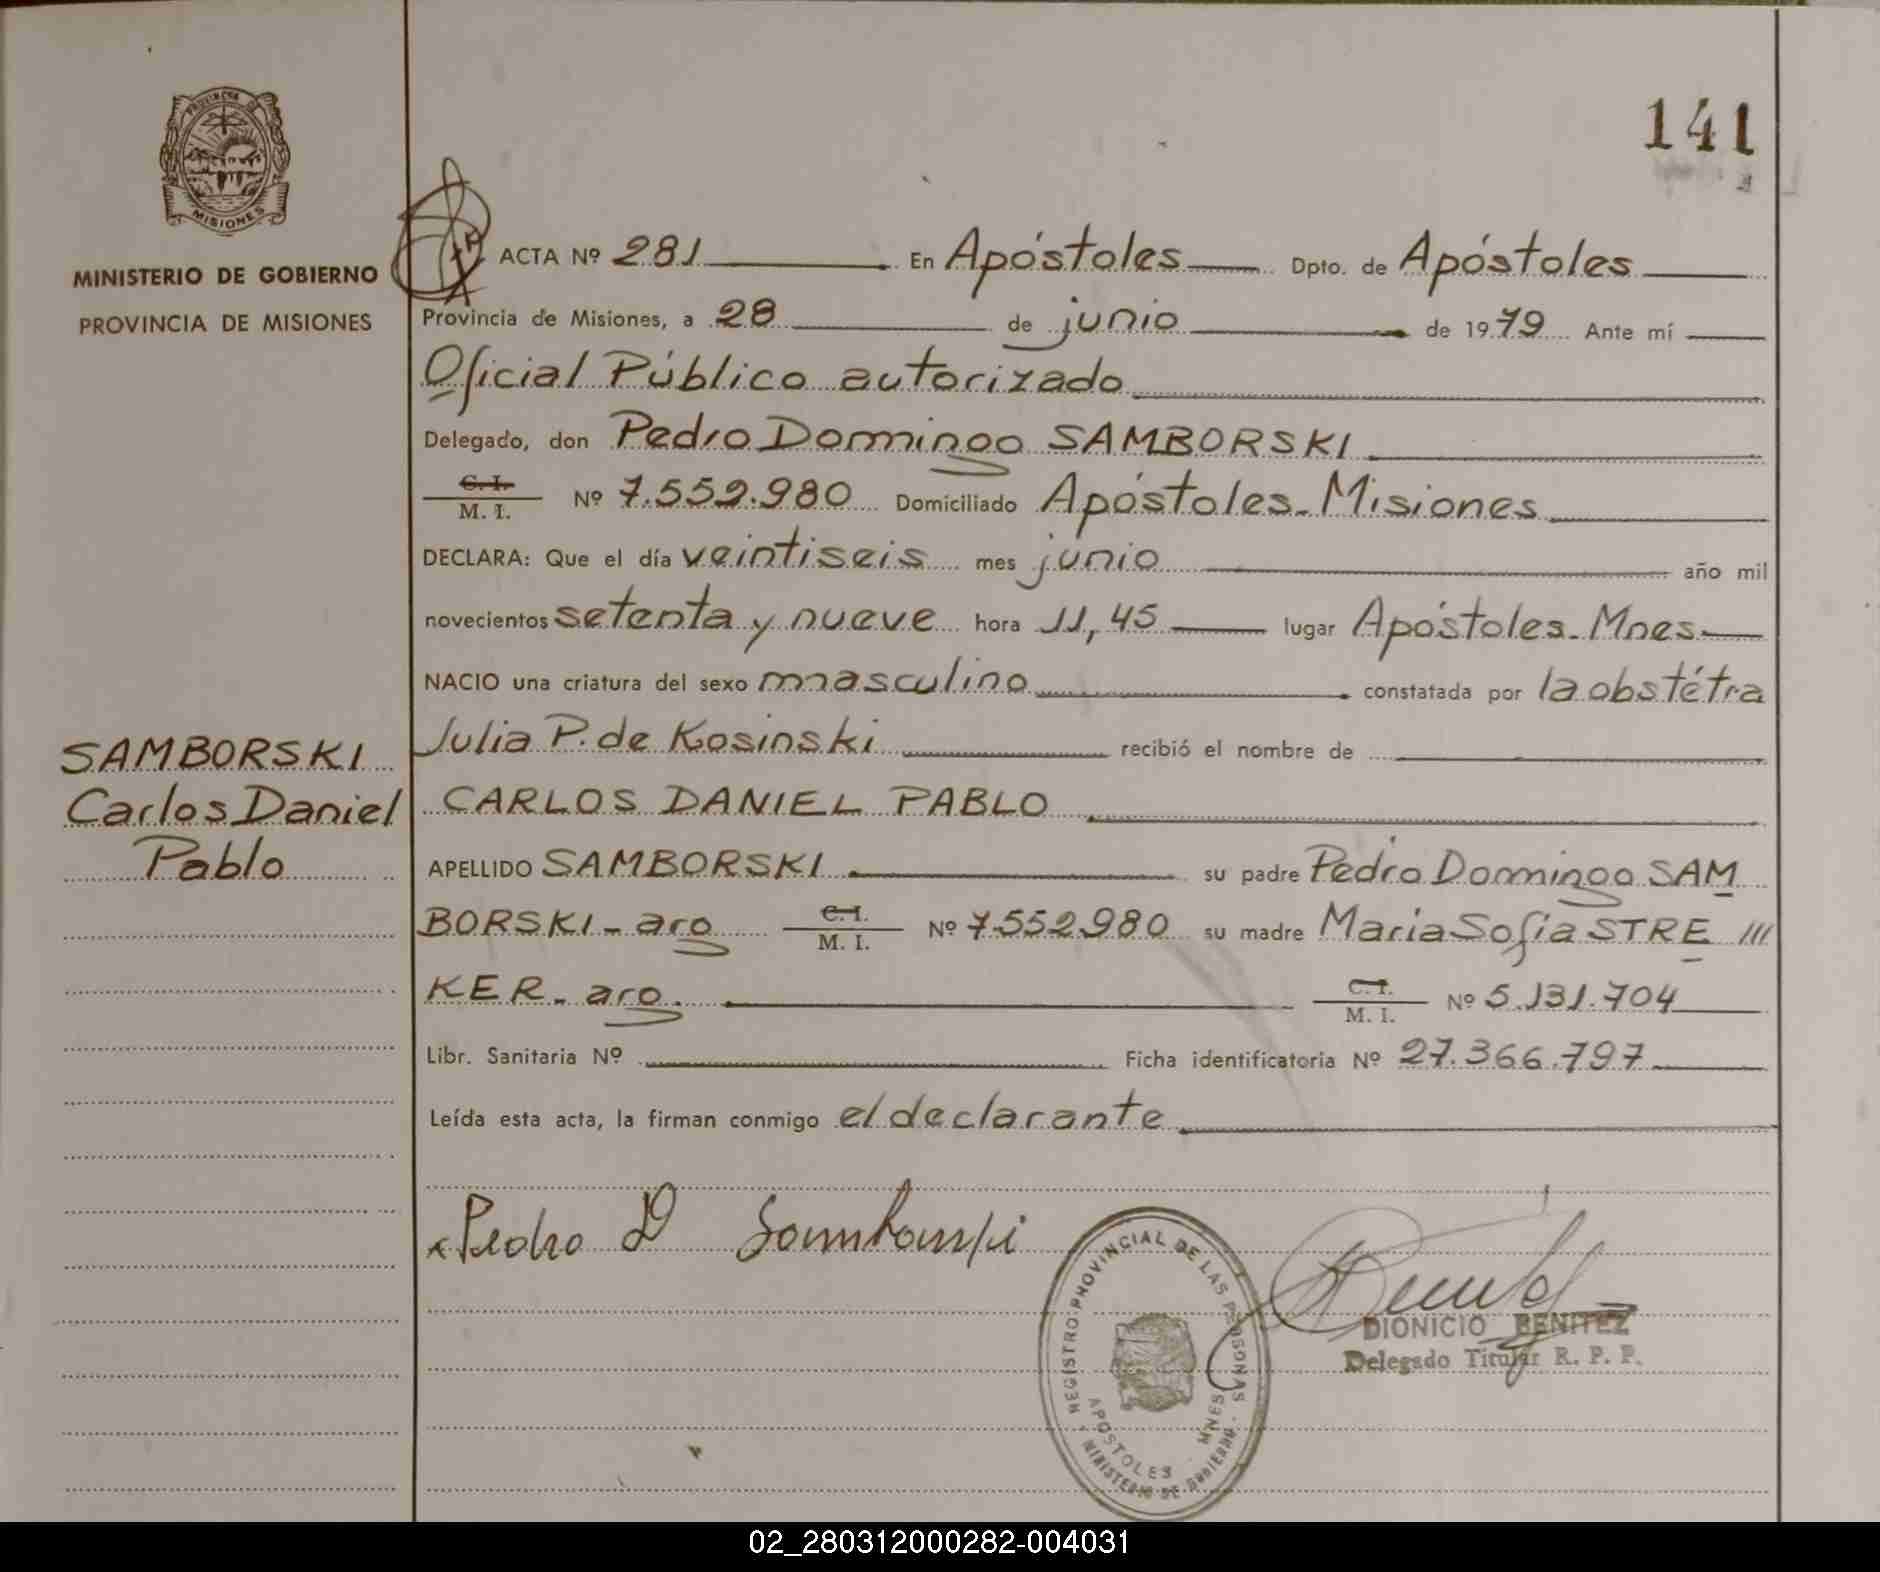 141
PROVINCIA DE
MISIONES
MINISTERIO DE GOBIERNO
PROVINCIA DE MISIONES
SAMBORSKI
Carlos Daniel
Pablo
ACTA Nº 281 En Apóstoles Dpto. de Apóstoles
Provincia de Misiones, a 28 de junio de 1979 Ante mí
Oficial Público autorizado
Delegado, don Pedro Domingo SAMBORSKI
C. I.
M. I. Nº 7.552.980 Domiciliado Apóstoles-Misiones
DECLARA: Que el día veintiseis mes junio año mil
novecientos setenta y nueve hora 11,45 lugar Apóstoles-Mnes-
NACIO una criatura del sexo masculino constatada por la obstétra
Julia P. de Kosinski recibió el nombre de
CARLOS DANIEL PABLO
APELLIDO SAMBORSKI su padre Pedro Domingo SAM
BORSKI-arg C. I.
M. I. Nº 7.552.980 su madre Maria Sofia STRE ///
KER-arg. C. I.
M. I. Nº 5.131.704
Libr. Sanitaria Nº Ficha identificatoria Nº 27.366.797
Leída esta acta, la firman conmigo el declarante
Pedro D Samborski
REGISTRO PROVINCIAL DE LAS PERSONAS
APOSTOLES MNES
MINISTERIO DE GOBIERNO
DIONICIO BENITEZ
Delegado Titular R. P. P.
02_280312000282-004031